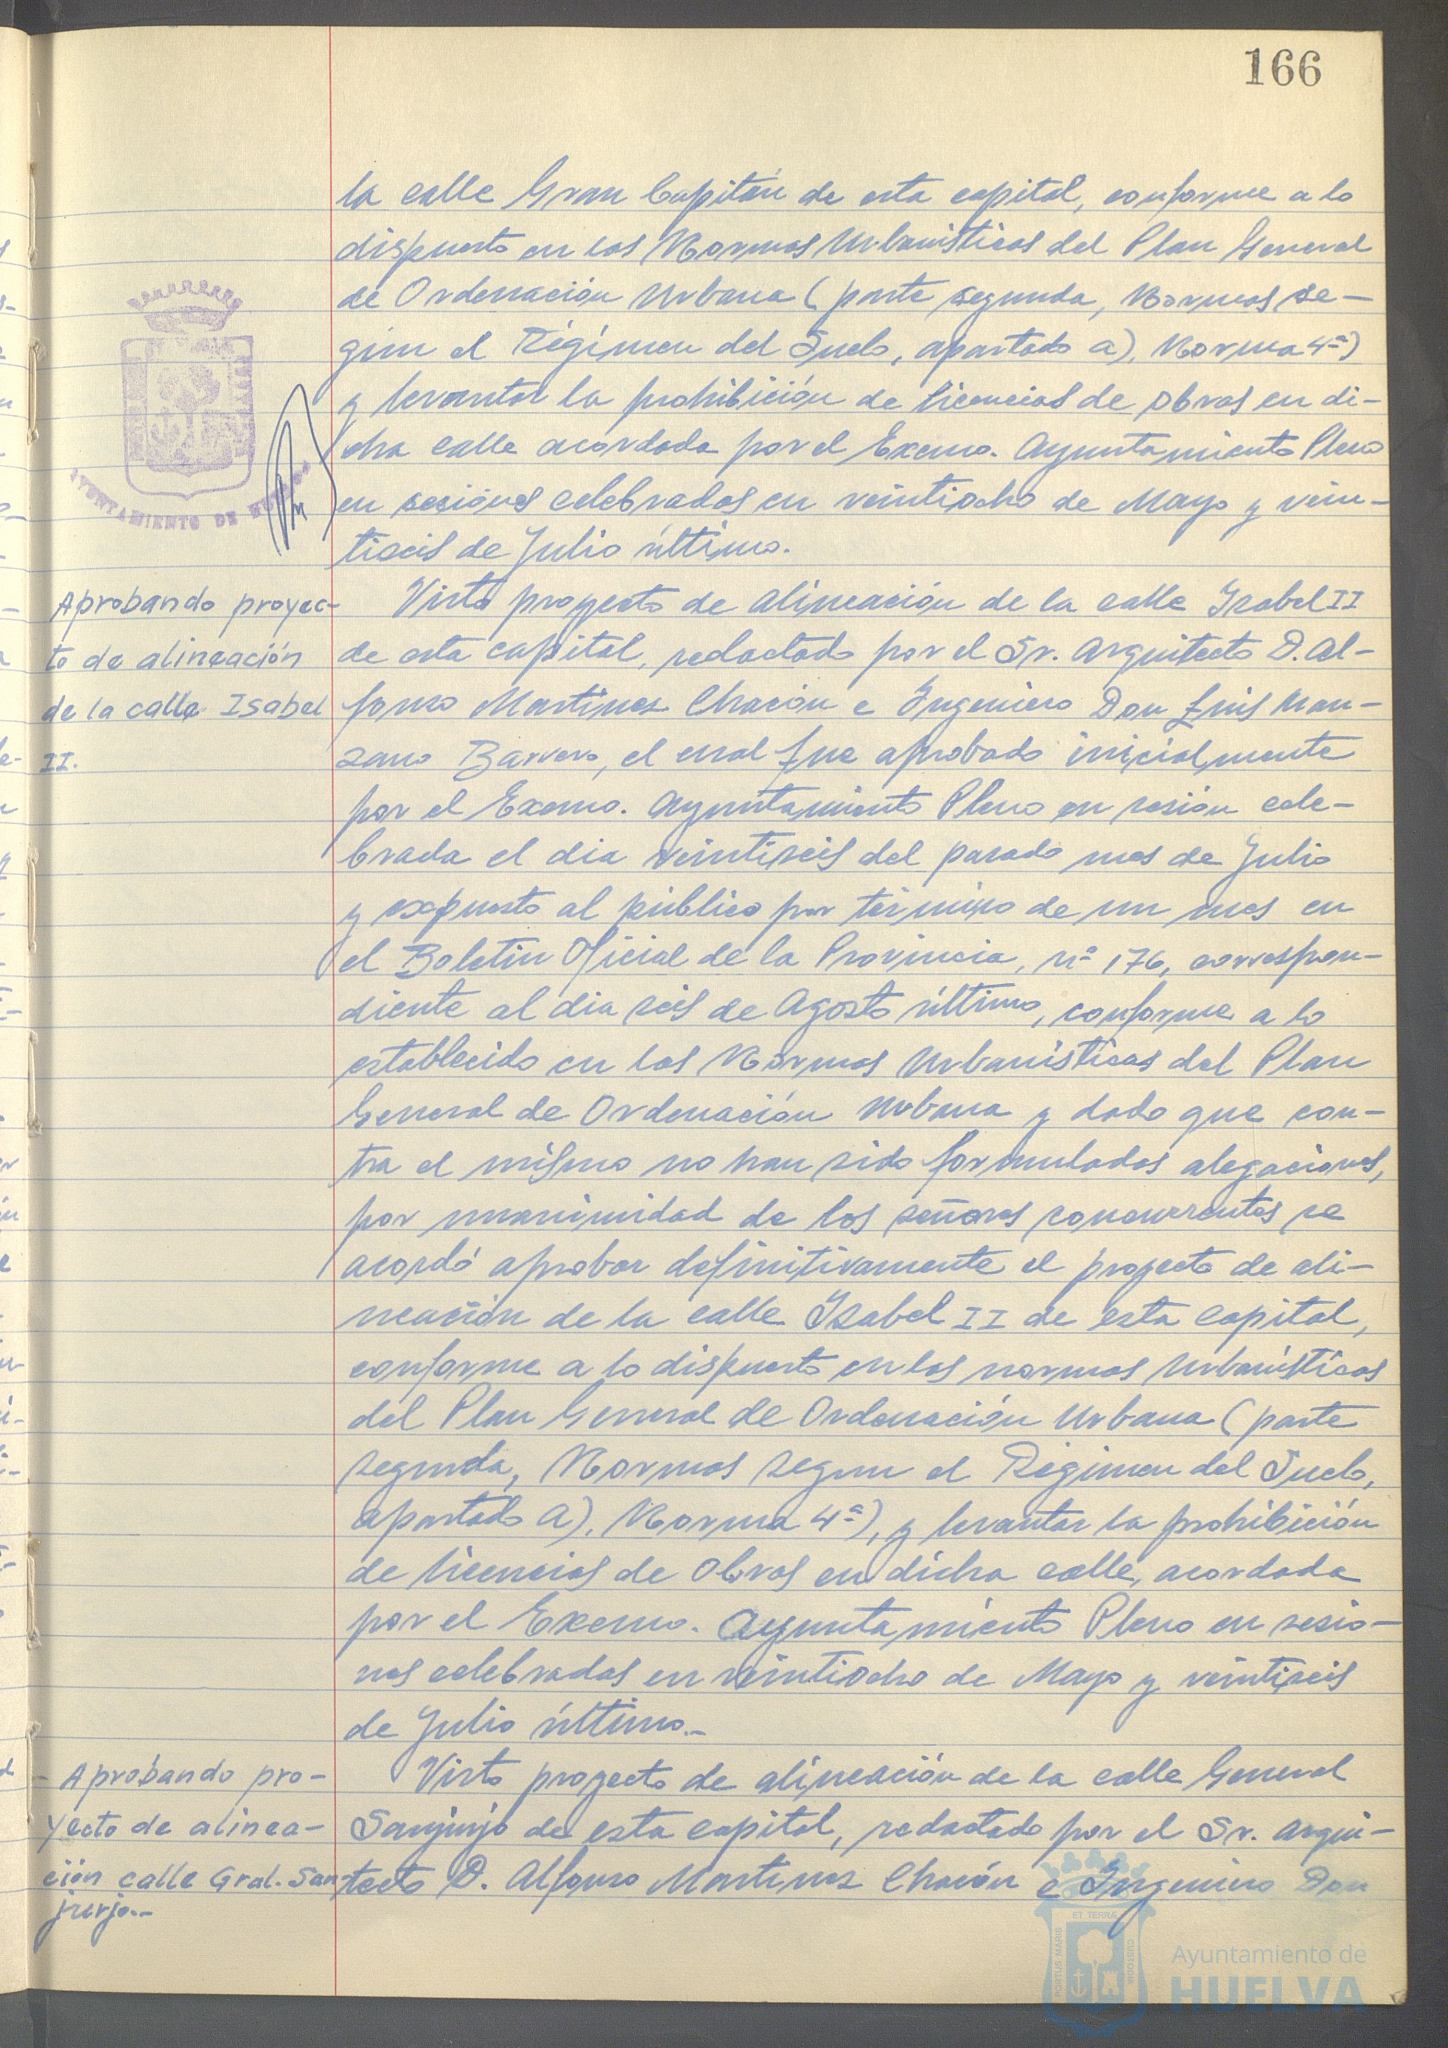 166
la calle Gran Capitán de esta capital, conforme a lo
dispuesto en las Normas Urbanísticas del Plan General
de Ordenación Urbana (parte segunda, Normas se-
gún el Régimen del Suelo, apartado a), Norma 4ª)
y levantar la prohibición de licencias de obras en di-
cha calle acordada por el Excmo. Ayuntamiento Pleno
en sesiones celebradas en veintiocho de Mayo y vein-
tiseis de Julio último.
AYUNTAMIENTO DE HUELVA
Aprobando proyec-
to de alineación
de la calle Isabel
II.
Visto proyecto de alineación de la calle Isabel II
de esta capital, redactado por el Sr. Arquitecto D. Al-
fonso Martinez Chacón e Ingeniero Don Luis Man-
zano Barrero, el cual fue aprobado inicialmente
por el Excmo. Ayuntamiento Pleno en sesión cele-
brada el dia veintiseis del pasado mes de Julio
y expuesto al público por término de un mes en
el Boletin Oficial de la Provincia, nº 176, correspon-
diente al dia seis de Agosto último, conforme a lo
establecido en las Normas Urbanísticas del Plan
General de Ordenación Urbana y dado que con-
tra el mismo no han sido formuladas alegaciones,
por unanimidad de los señores concurrentes se
acordó aprobar definitivamente el proyecto de ali-
neación de la calle Isabel II de esta capital,
conforme a lo dispuesto en las normas Urbanísticas
del Plan General de Ordenación Urbana (parte
segunda, Normas segun el Régimen del Suelo,
apartado a), Norma 4ª), y levantar la prohibición
de licencias de Obras en dicha calle, acordada
por el Excmo. Ayuntamiento Pleno en sesio-
nes celebradas en veintiocho de Mayo y veintiseis
de Julio último.-
Aprobando pro-
yecto de alinea-
ción calle Gral. San-
jurjo.-
Visto proyecto de alineación de la calle General
Sanjurjo de esta capital, redactado por el Sr. Arqui-
tecto D. Alfonso Martinez Chacón e Ingeniero Don
PORTUS MARIS
ET TERRÆ
CUSTODIA
Ayuntamiento de
HUELVA